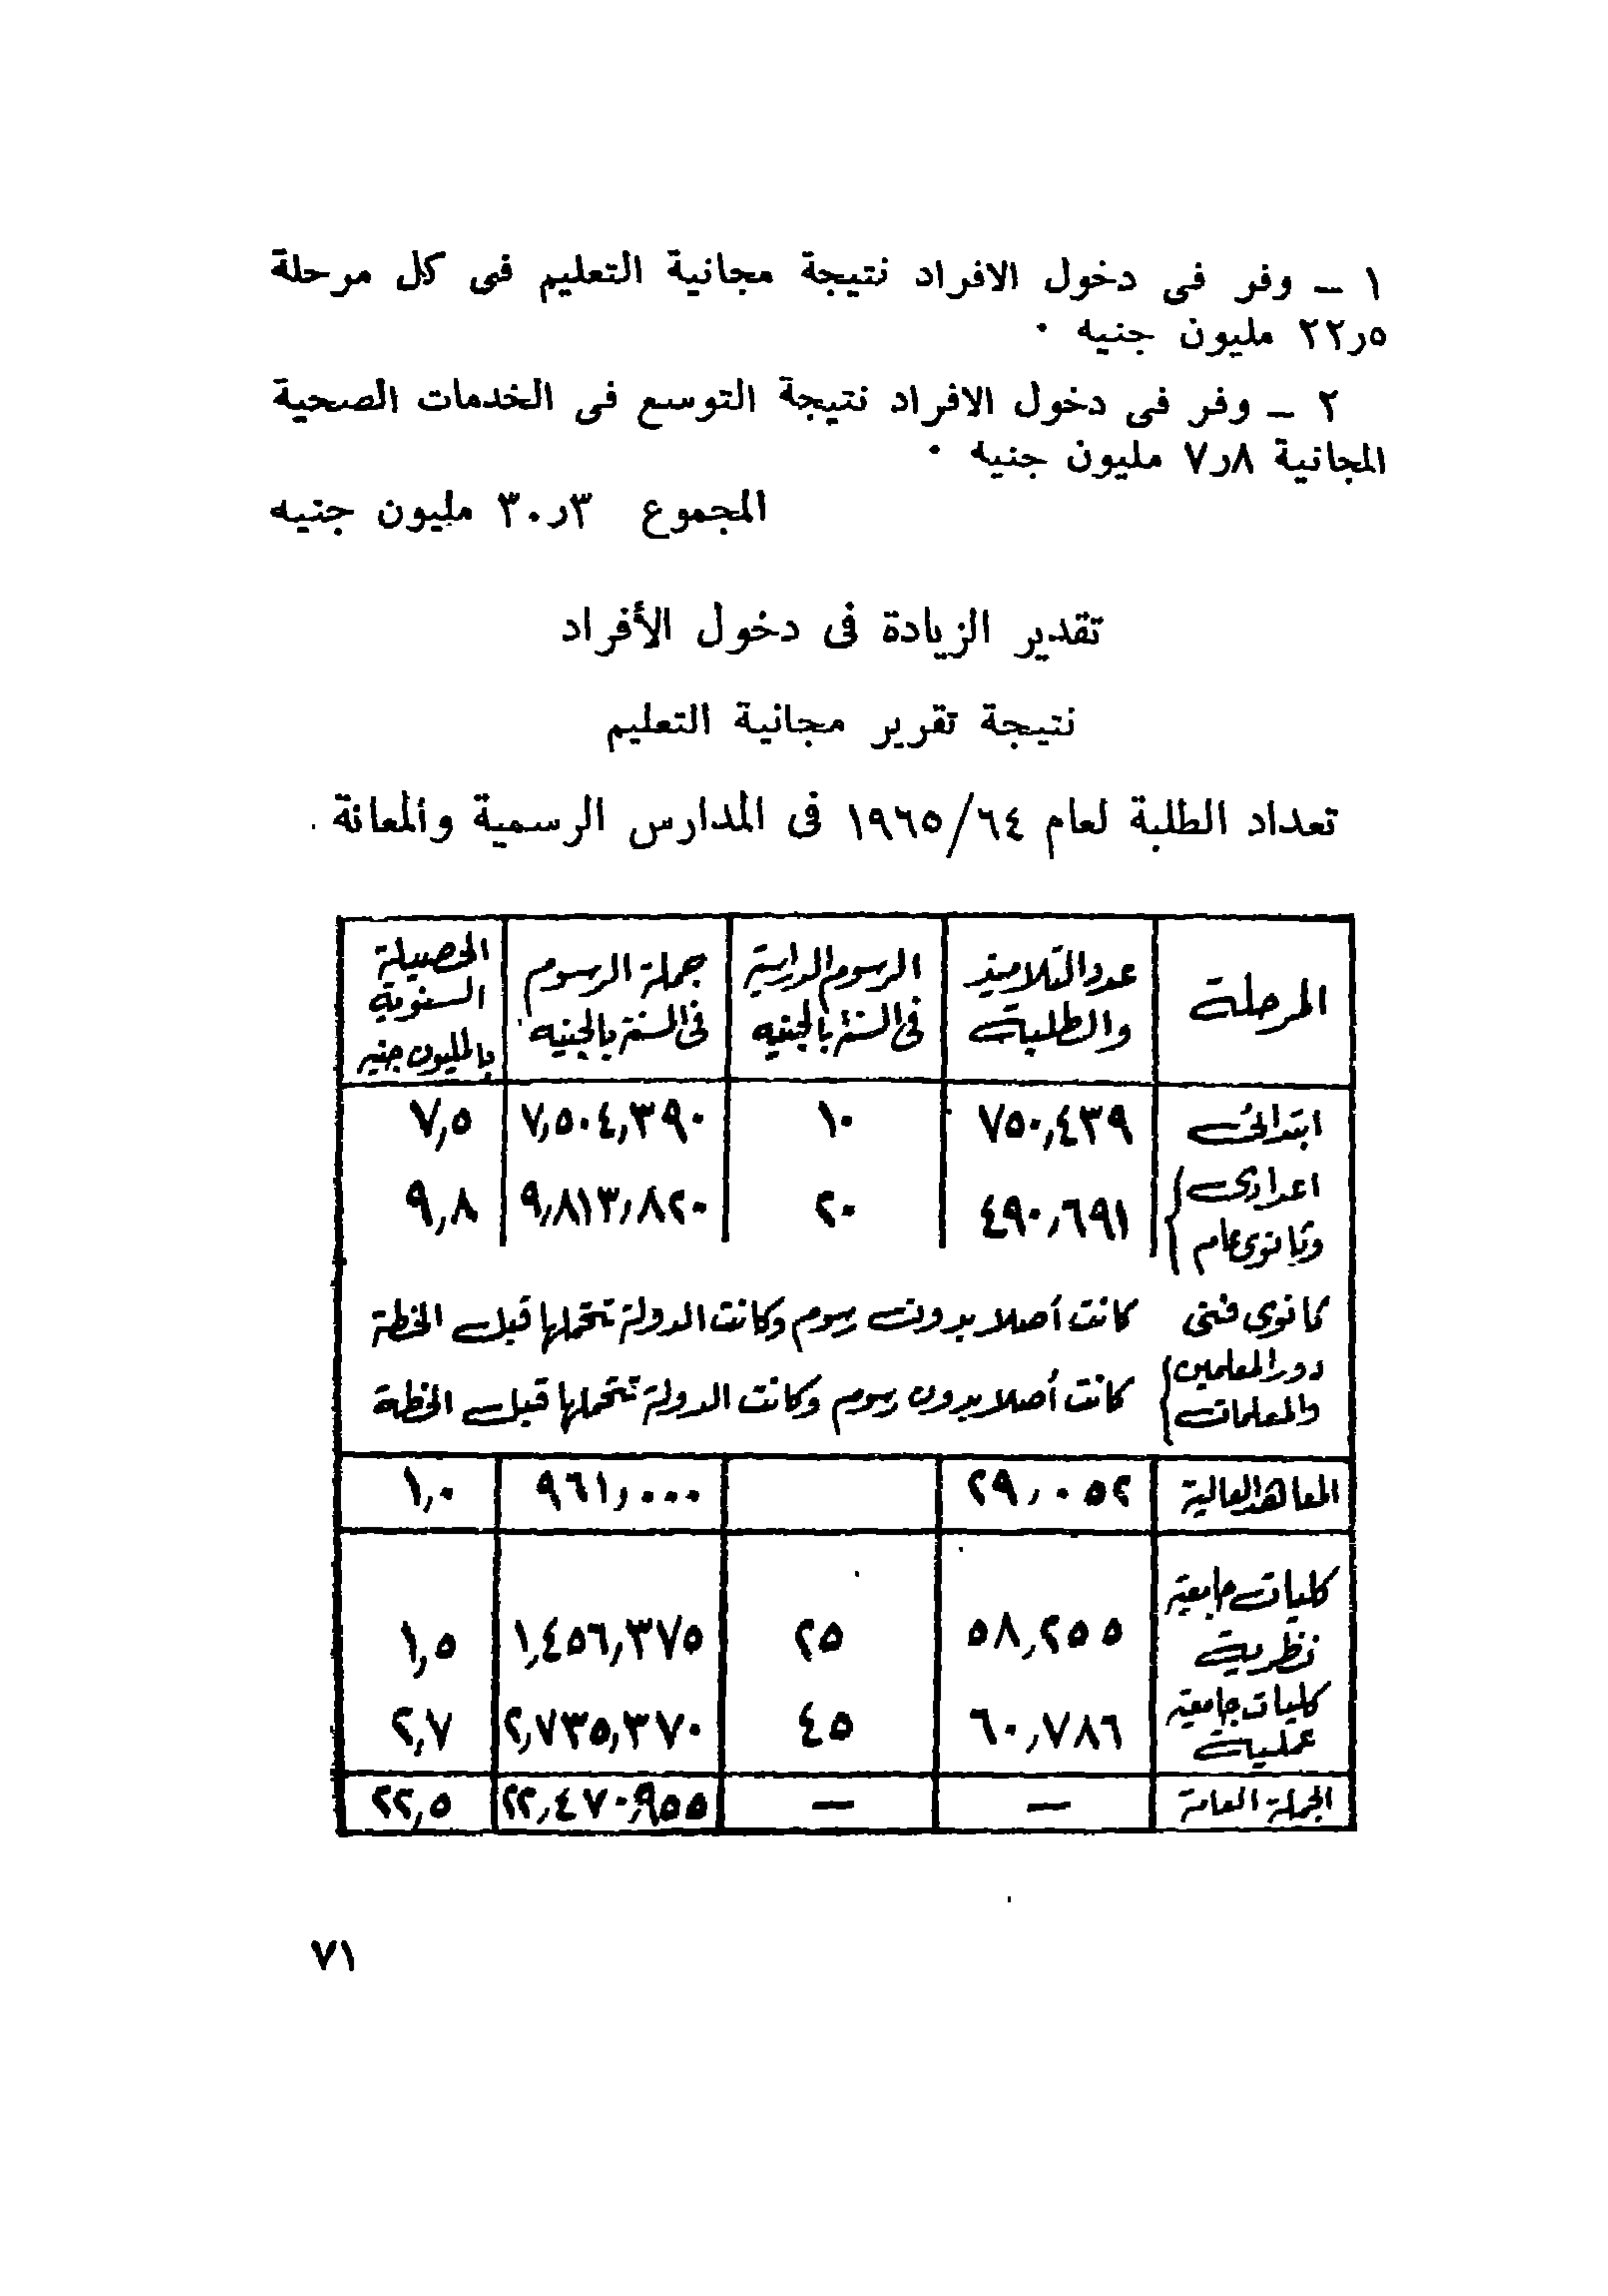 ١ — وفر فى دخول الافراد نتيجة مجانية التعليم فى كل مرحلة
٥ر٢٢ مليون جنيه ٠
٢ — وفر فى دخول الافراد نتيجة التوسع فى الخدمات الصحية
المجانية ٨ر٧ مليون جنيه ٠
المجموع ٣ر٣٠ مليون جنيه
تقدير الزيادة فى دخول الأفراد
نتيجة تقرير مجانية التعليم
تعداد الطلبة لعام ٦٤/١٩٦٥ فى المدارس الرسمية والمعانة ٠
المرحلة عدد التلاميذ والطلبة الرسوم الدراسية فى السنة بالجنيه جملة الرسوم فى السنة بالجنيه الحصيلة السنوية بالمليون جنيه
ابتدائى ٧٥٠,٤٣٩ ١٠ ٧,٥٠٤,٣٩٠ ٧,٥
اعدادى وثانوى عام ٤٩٠,٦٩١ ٢٠ ٩,٨١٣,٨٢٠ ٩,٨
ثانوى فنى كانت أصلا بدون رسوم وكانت الدولة تتحملها قبل الخطة
دور المعلمين والمعلمات كانت أصلا بدون رسوم وكانت الدولة تتحملها قبل الخطة
المعاهد العالية ٢٩,٠٥٢ ٩٦١,٠٠٠ ١,٠
كليات جامعية نظرية ٥٨,٢٥٥ ٢٥ ١,٤٥٦,٣٧٥ ١,٥
كليات جامعية عملية ٦٠,٧٨٦ ٤٥ ٢,٧٣٥,٣٧٠ ٢,٧
الجملة العامة — — ٢٢,٤٧٠,٩٥٥ ٢٢,٥
٧١